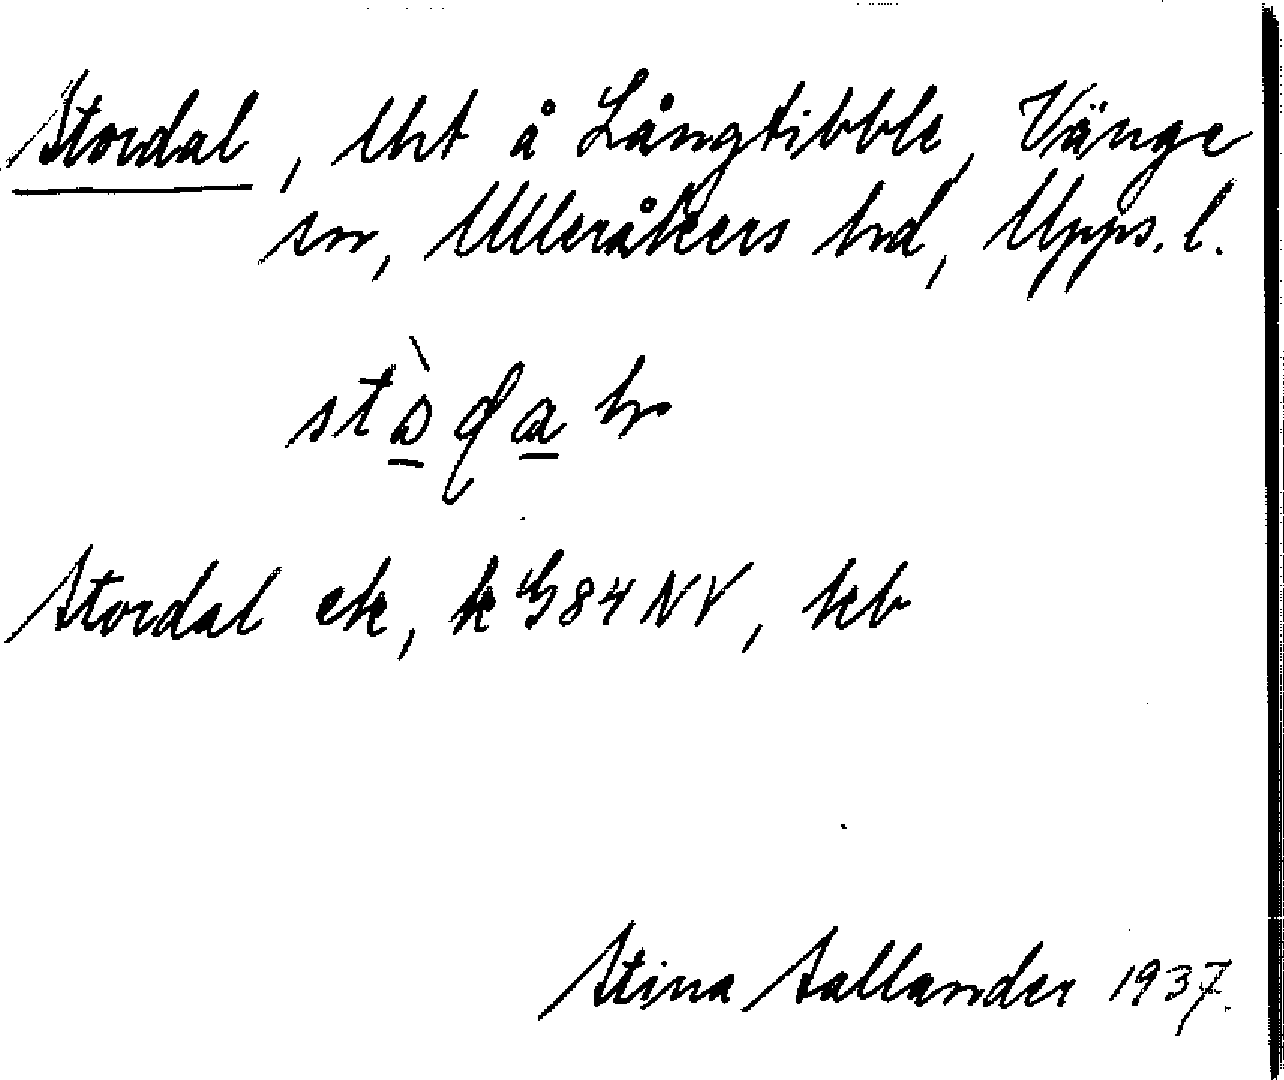 Stordal, lht å Långtibble, Vänge
sn, Ulleråkers hd, Upps. l.
Stordal ek, k G84NV, kb
Stina Sallander 1937.